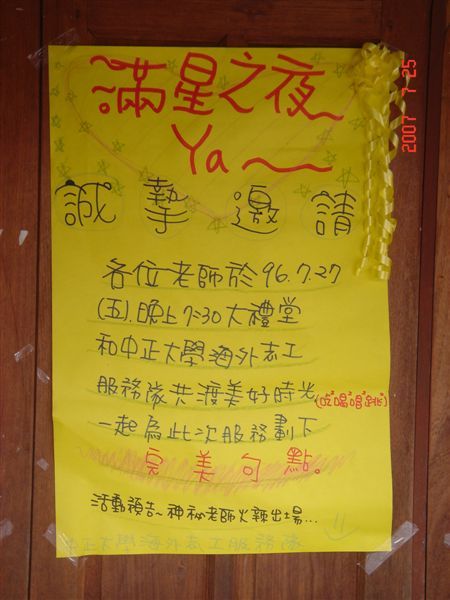 滿星之夜
Ya~
誠摯邀請
各位老師於96.7.27
(五).晚上7:30大禮堂
和中正大學海外志工
服務隊共渡美好時光(吃喝唱跳)
一起為此次服務劃下
完美句點。
活動預告~神祕老師火辣出場...
中正大學海外志工服務隊
2007 7 25